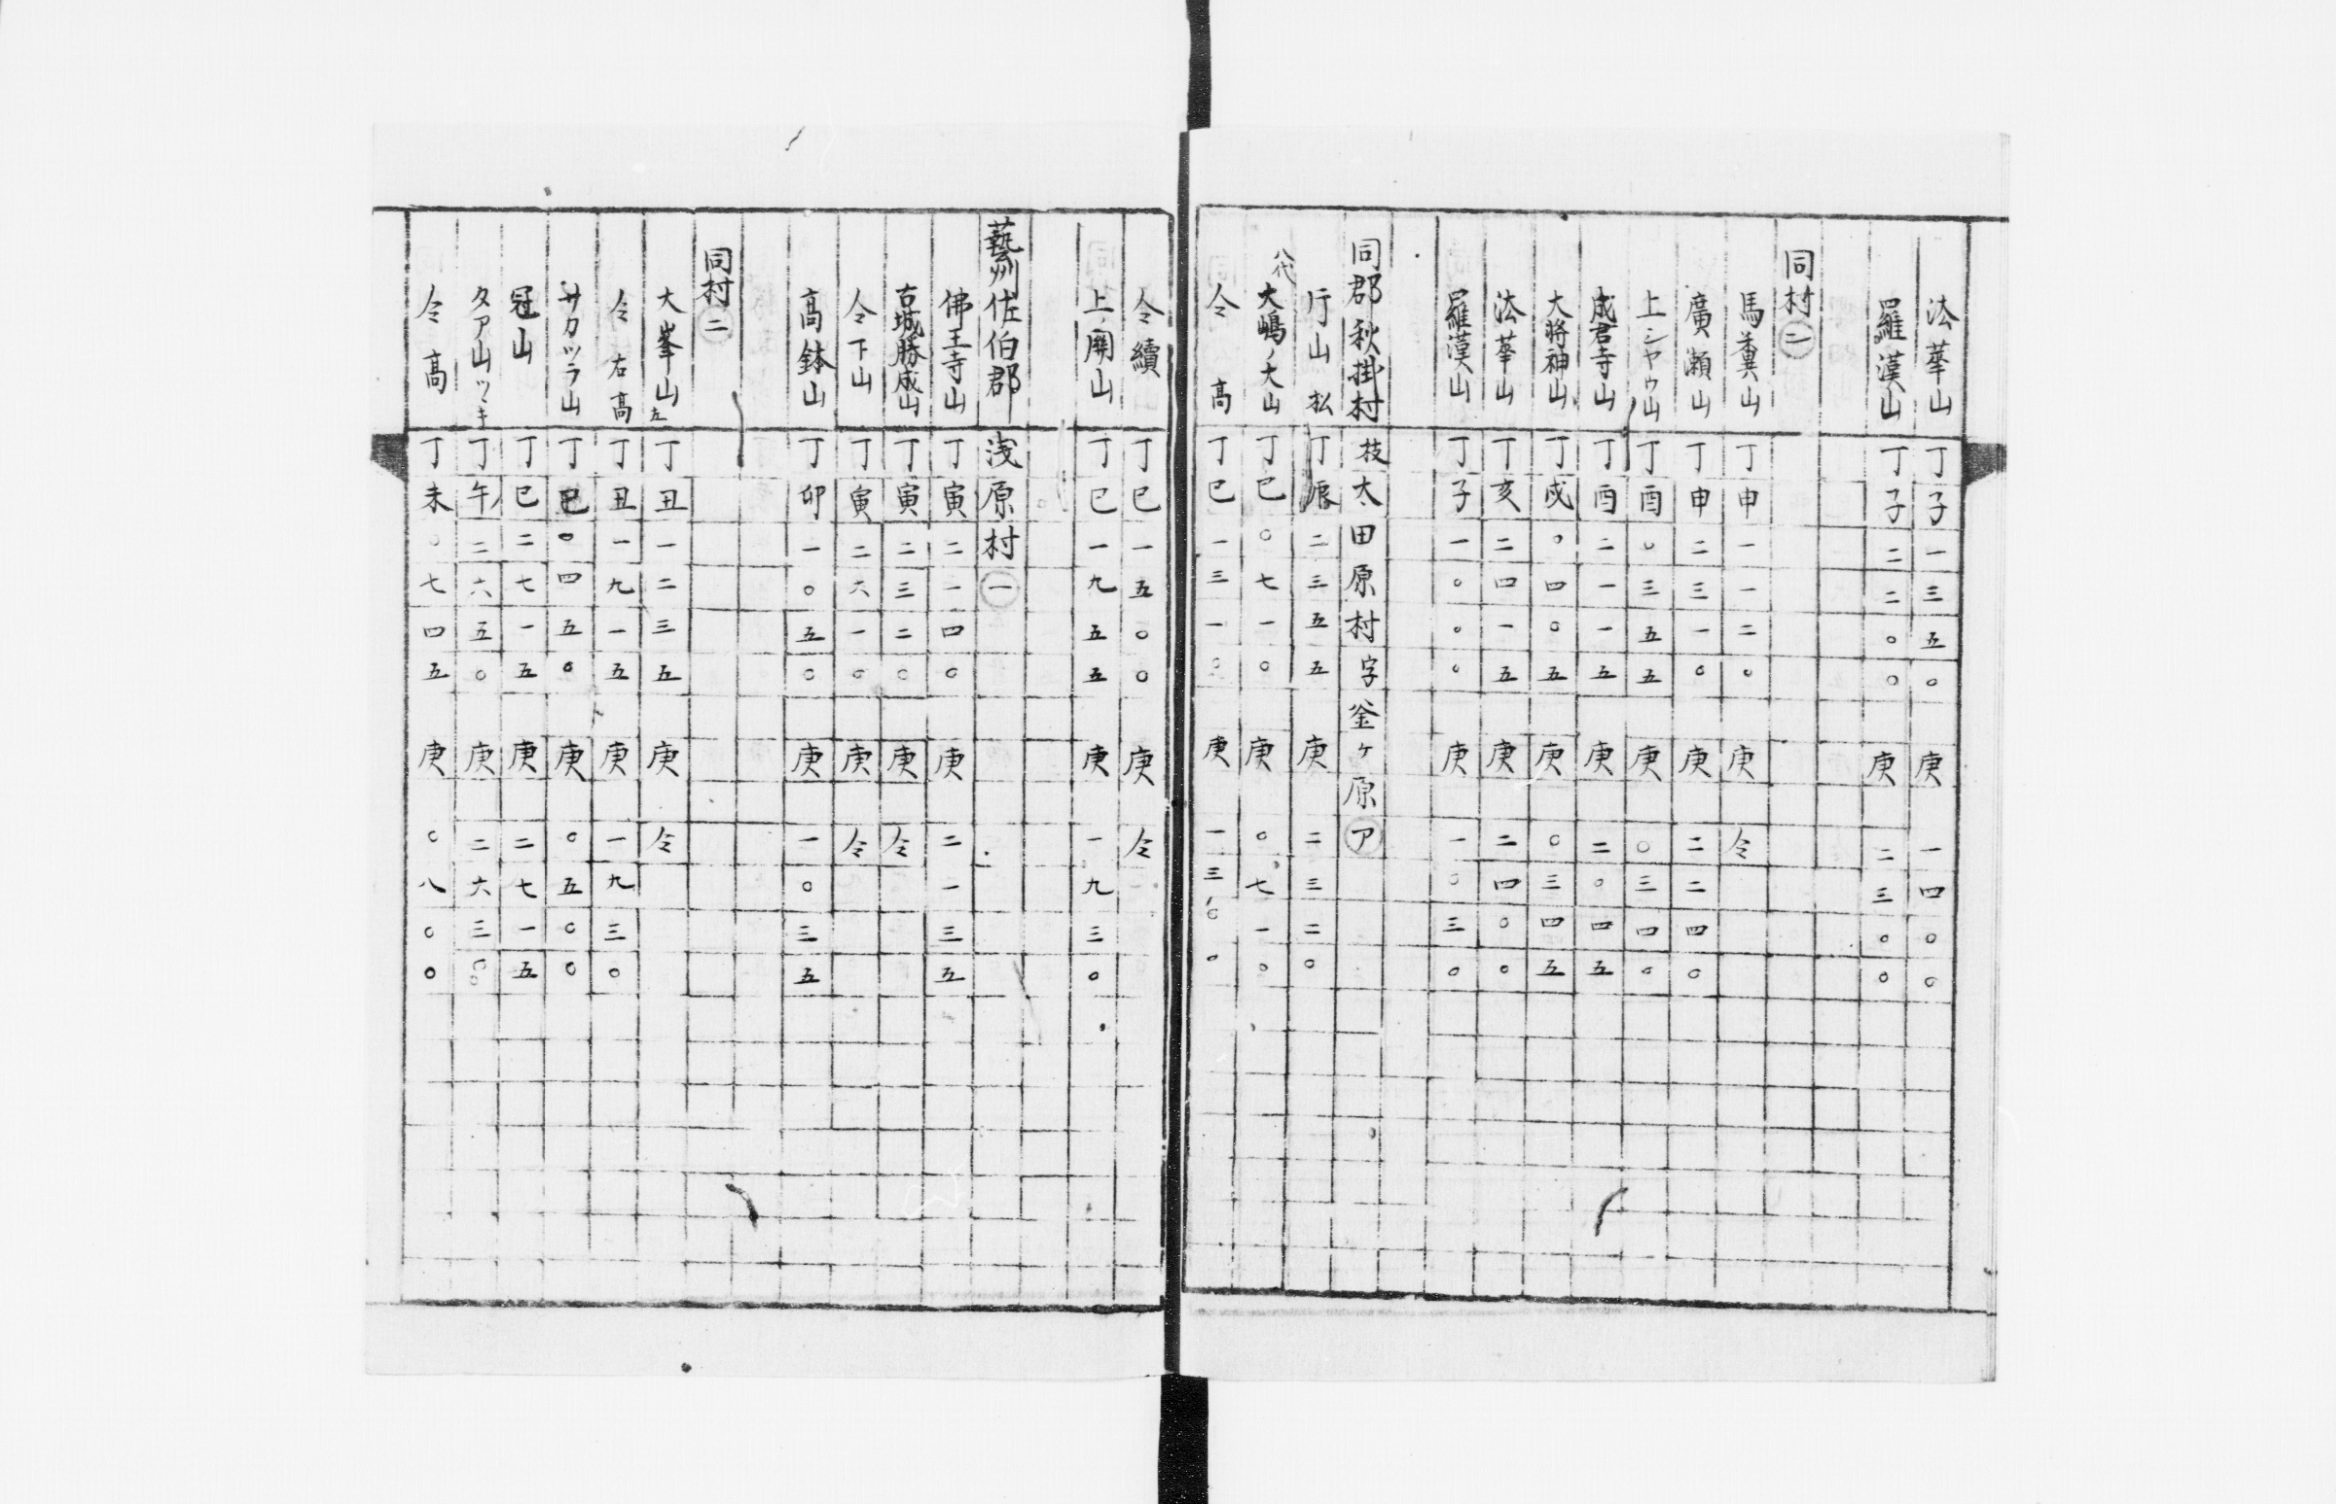 法華山 丁子一三五〇 庚 一四〇〇
羅漢山 丁子二二〇〇 庚 二三〇〇
同村㊁
馬糞山 丁申一一二〇 庚 仝
廣瀬山 丁申二三一〇 庚 二二四〇
上シヤウ山 丁酉〇三五五 庚 〇三四〇
成君寺山 丁酉二一一五 庚 二〇四五
大将神山 丁戌〇四〇五 庚 〇三四五
法華山 丁亥二四一五 庚 二四〇〇
羅漢山 丁子一〇〇〇 庚 一〇三〇
同郡秋掛村枝大田原村字釜ヶ原㋐
行山 松 丁辰二三五五 庚 二三二〇
八代大嶋ノ大山 丁巳〇七一〇 庚 〇七一〇
仝 高 丁巳一三一〇 庚 一三〇〇
仝續 丁巳一五〇〇 庚 仝
上ノ関山 丁巳一九五五 庚 一九三〇
藝州佐伯郡浅原村㊀
佛王寺山 丁寅二一四〇 庚 二一三五
古城勝成山 丁寅二三二〇 庚 仝
仝下山 丁寅二六一〇 庚 仝
高鉢山 丁卯一〇五〇 庚 一〇三五
同村㊁
大峯山左 丁丑一二三五 庚 仝
仝右高 丁丑一九一五 庚 一九三〇
サカツラ山 丁巳〇四五〇 庚 〇五〇〇
冠山 丁巳二七一五 庚 二七一五
タア山ツヽキ 丁午二六五〇 庚 二六三〇
仝高 丁未〇七四五 庚 〇八〇〇